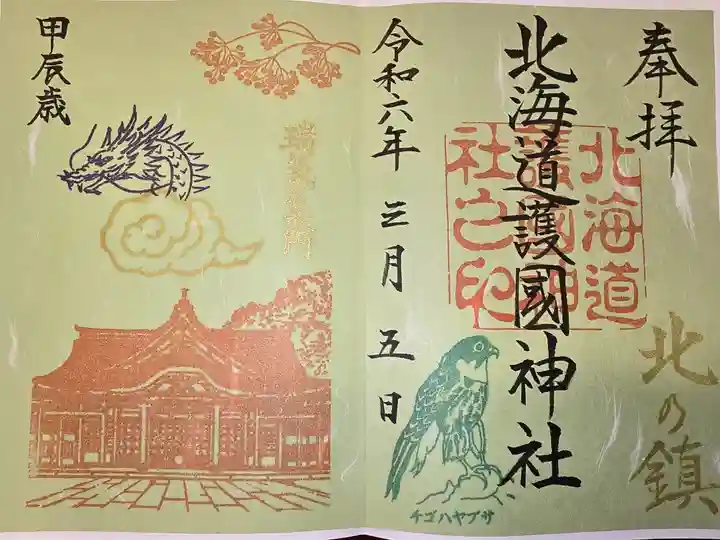 奉拝
北海道
護國神
社之印
北の鎮
北海道護國神社
令和六年 三月 五日
チゴハヤブサ
甲辰歳